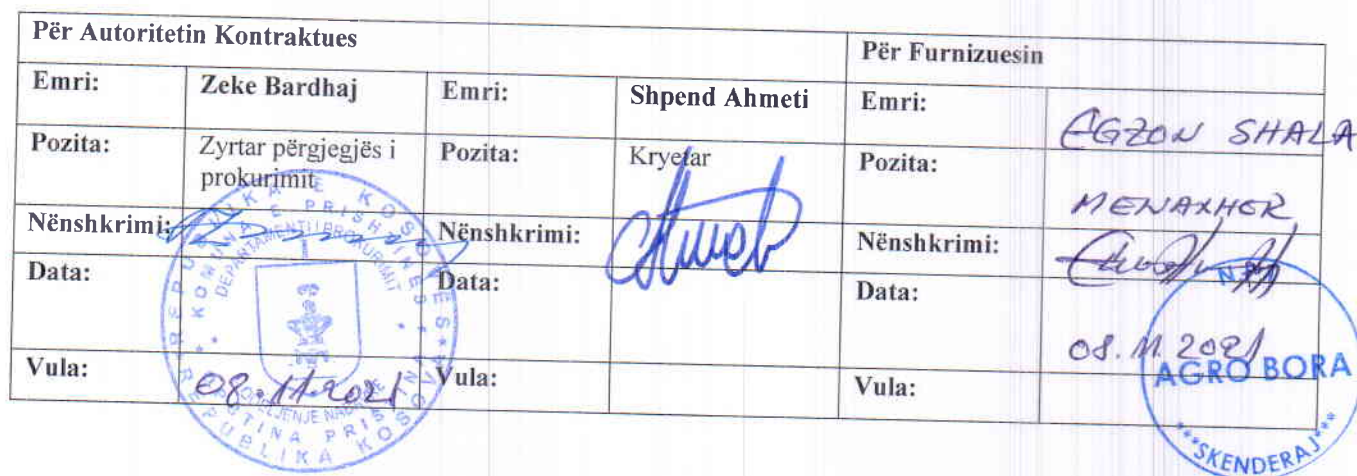 Për Autoritetin Kontraktues
Për Furnizuesin
Emri: Zeke Bardhaj Emri: Shpend Ahmeti Emri: EGZON SHALA
Pozita: Zyrtar përgjegjës i prokurimit Pozita: Kryetar Pozita: MENAXHER
Nënshkrimi: Nënshkrimi: Nënshkrimi:
Data: Data: Data: 08.11.2021
Vula: 08.11.2021 Vula: Vula:
REPUBLIKA E KOSOVËS
REPUBLIKA KOSOVA
KOMUNA E PRISHTINËS
OPŠTINA PRIŠTINA
DEPARTAMENTI I PROKURIMIT
ODELJENJE NABAVKE
AGRO BORA
***SKENDERAJ***